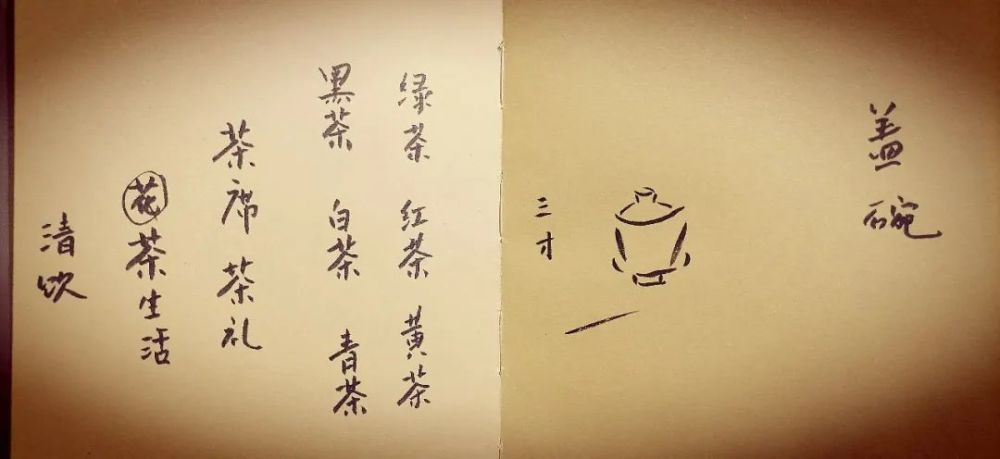 盖碗
三才
绿茶 红茶 黄茶
黑茶 白茶 青茶
茶席 茶礼
花茶生活
清饮